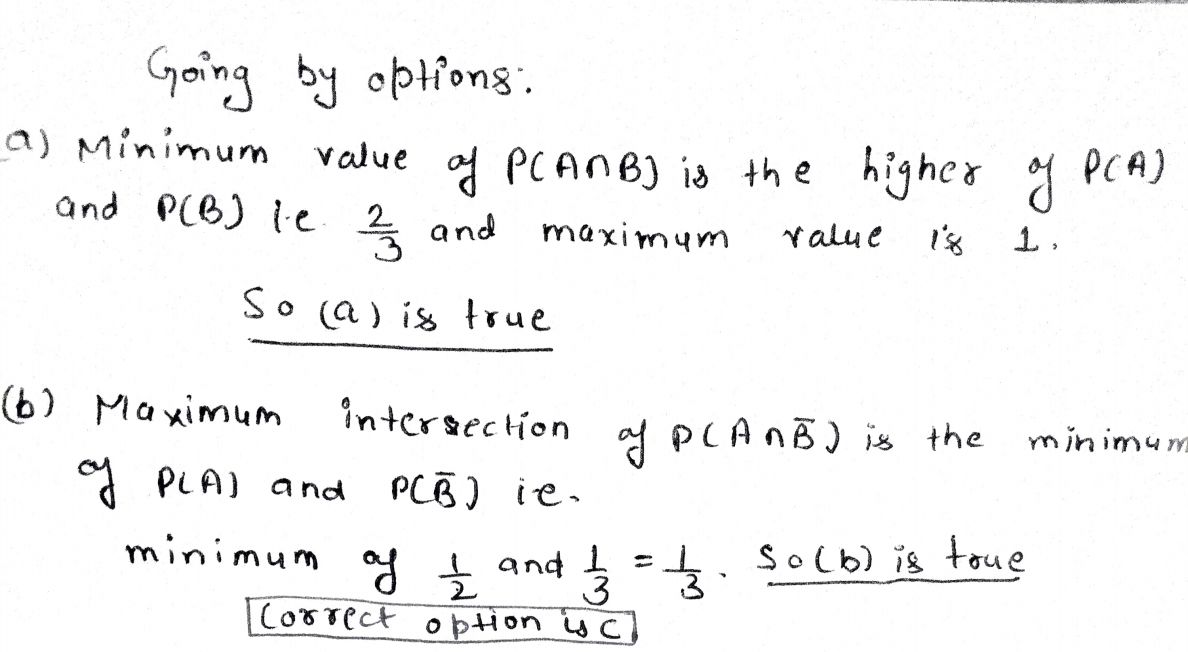 Going by options:
a) Minimum value of P(A∩B) is the higher of P(A)
and P(B) i.e. 2/3 and maximum value is 1.
So (a) is true
(b) Maximum intersection of P(A∩B̄) is the minimum
of P(A) and P(B̄) ie.
minimum of 1/2 and 1/3 = 1/3. So (b) is true
Correct option is C